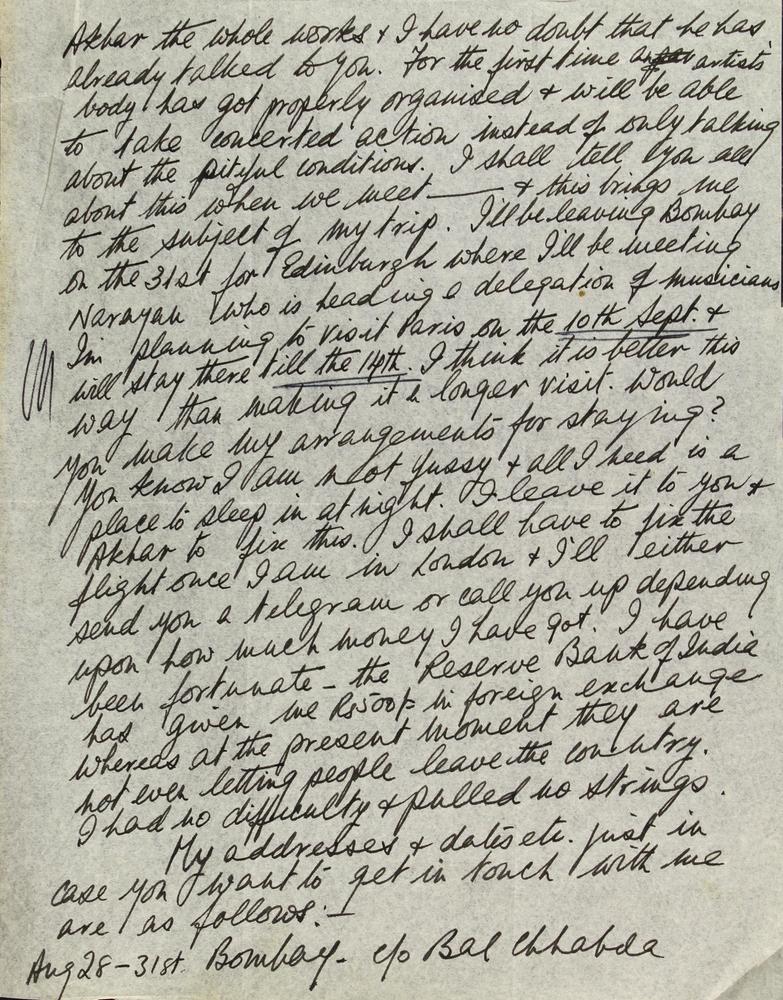 Akbar the whole works & I have no doubt that he has
already talked to you. For the first time an artists'
body has got properly organised & will be able
to take concerted action instead of only talking
about the pitiful conditions. I shall tell you all
about this when we meet —— & this brings me
to the subject of my trip. I'll be leaving Bombay
on the 31st for Edinburgh where I'll be meeting
Narayan who is heading a delegation of musicians
I'm planning to visit Paris on the 10th Sept. &
will stay there till the 14th. I think it is better this
way than making it a longer visit. Would
you make my arrangements for staying?
You know I am not fussy & all I need is a
place to sleep in at night. I leave it to you &
Akbar to fix this. I shall have to fix the
flight once I am in London & I'll either
send you a telegram or call you up depending
upon how much money I have got. I have
been fortunate – the Reserve Bank of India
has given me Rs 500/- in foreign exchange
whereas at the present moment they are
not even letting people leave the country.
I had no difficulty & pulled no strings.
My addresses & dates etc. just in
case you want to get in touch with me
are as follows:–
Aug 28–31st. Bombay. c/o Bal Chhabda